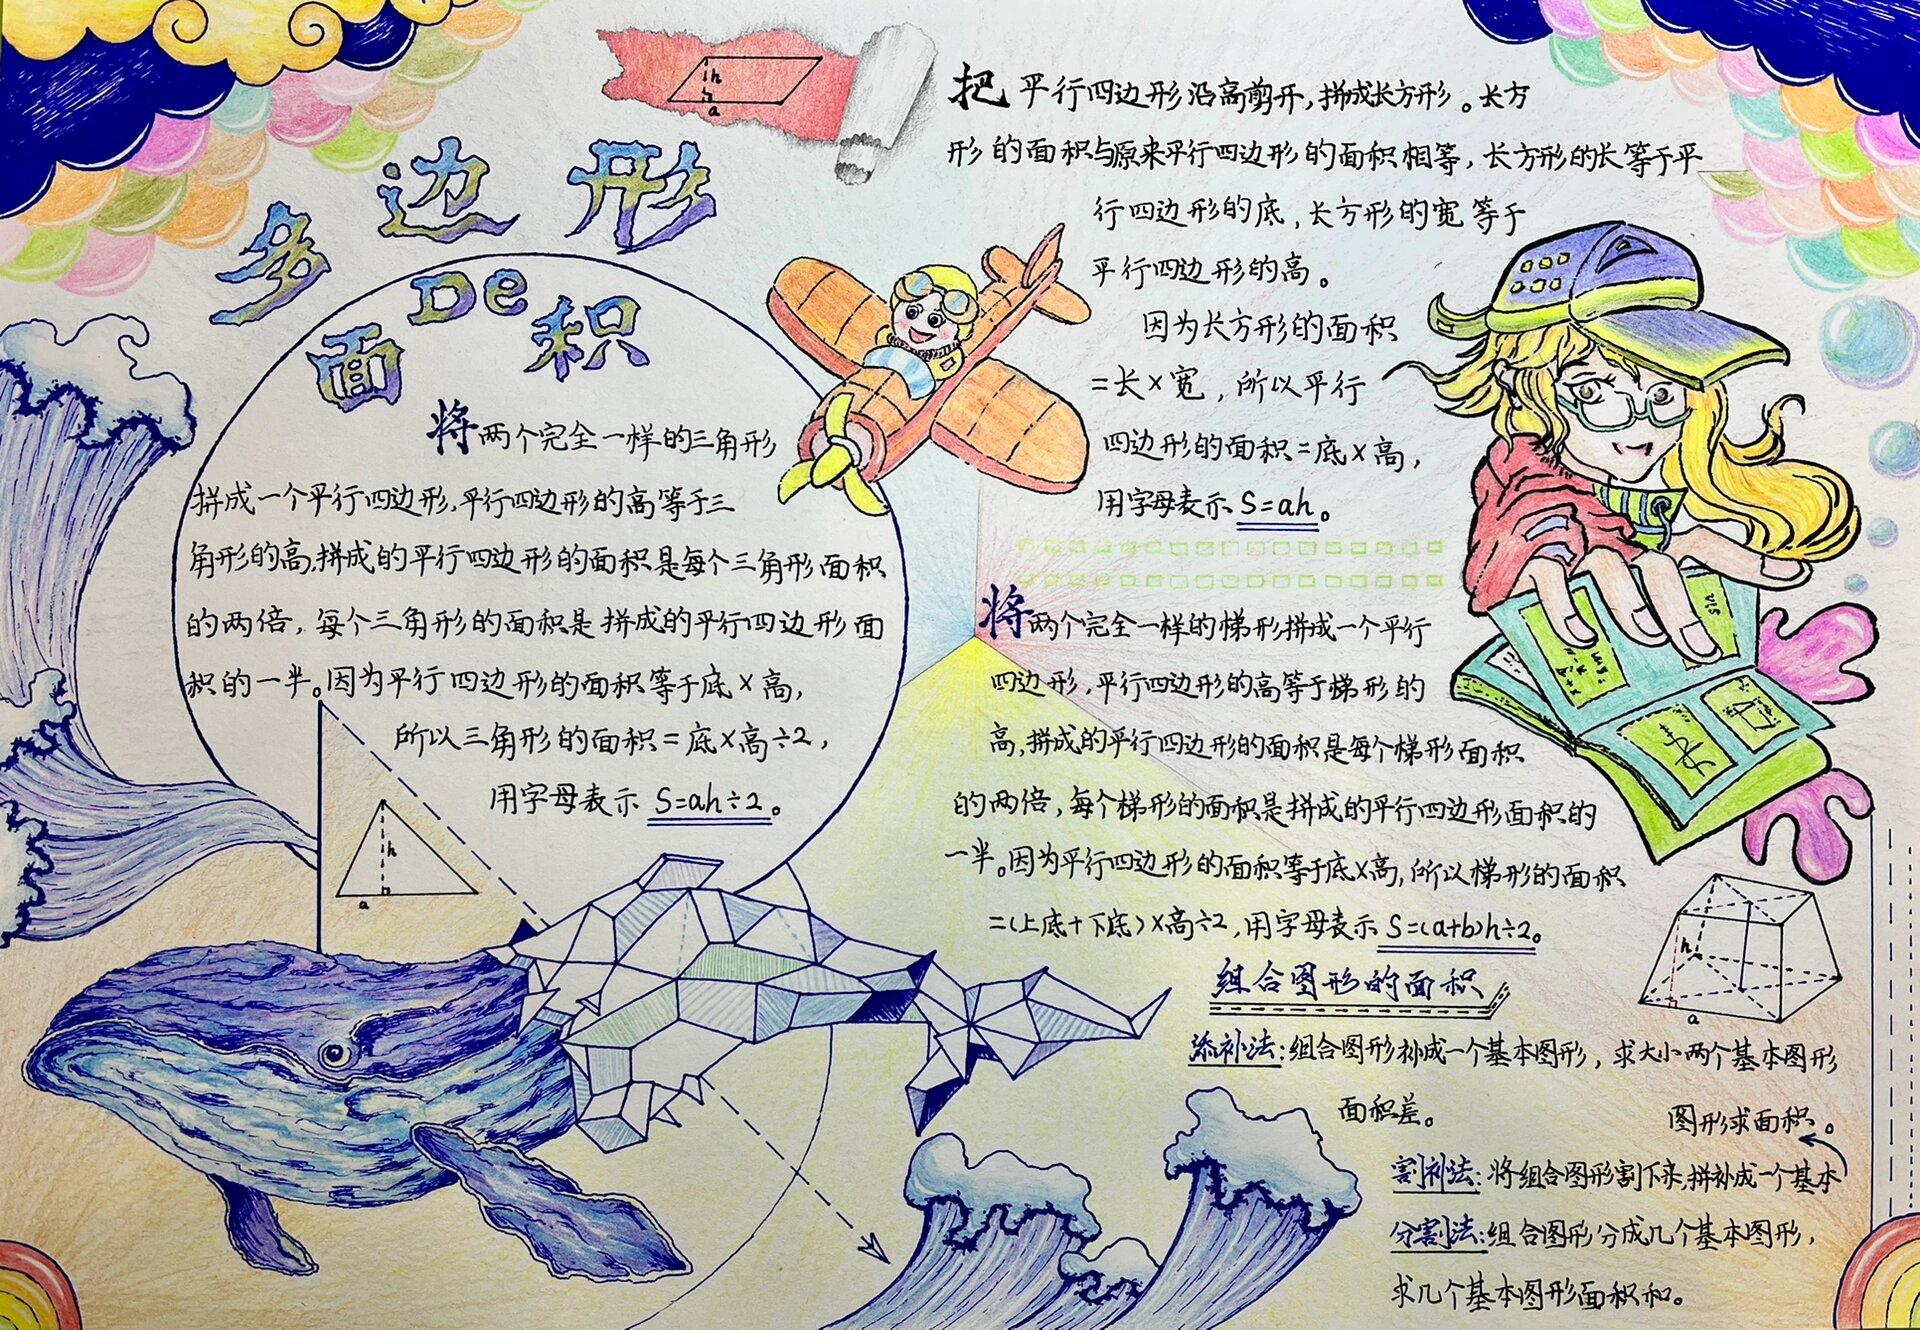 多边形
De
面积
将两个完全一样的三角形
拼成一个平行四边形,平行四边形的高等于三
角形的高,拼成的平行四边形的面积是每个三角形面积
的两倍,每个三角形的面积是拼成的平行四边形面
积的一半。因为平行四边形的面积等于底×高,
所以三角形的面积=底×高÷2,
用字母表示 S=ah÷2。
h
a
h
a
把平行四边形沿高剪开,拼成长方形。长方
形的面积与原来平行四边形的面积相等,长方形的长等于平
行四边形的底,长方形的宽等于
平行四边形的高。
因为长方形的面积
=长×宽,所以平行
四边形的面积=底×高,
用字母表示 S=ah。
将两个完全一样的梯形拼成一个平行
四边形,平行四边形的高等于梯形的
高,拼成的平行四边形的面积是每个梯形面积
的两倍,每个梯形的面积是拼成的平行四边形面积的
一半。因为平行四边形的面积等于底×高,所以梯形的面积
=(上底+下底)×高÷2,用字母表示 S=(a+b)h÷2。
h
a
组合图形的面积
添补法:组合图形补成一个基本图形,求大小两个基本图形
面积差。
图形求面积。
割补法:将组合图形割下来,拼补成一个基本
分割法:组合图形分成几个基本图形,
求几个基本图形面积和。